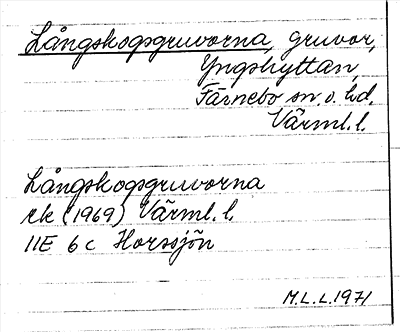 Långskogsgruvorna, gruvor,
Yngshyttan,
Färnebo sn. o. hd.
Värml. l.
Långskogsgruvorna
rk (1969) Värml. l.
11E 6c Horssjön
M.L.L. 1971